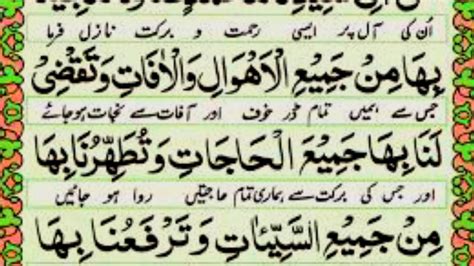 اُن کی آل پر ایسی رحمت و برکت نازل فرما
بِهَا مِنْ جَمِيْعِ الْاَهْوَالِ وَالْاٰفَاتِ وَتَقْضِىْ
جس سے ہمیں تمام ڈر خوف اور آفات سے نجات ہوجائے
لَنَا بِهَا جَمِيْعَ الْحَاجَاتِ وَتُطَهِّرُنَا بِهَا
اور جس کی برکت سے ہماری تمام حاجتیں روا ہو جائیں
مِنْ جَمِيْعِ السَّيِّاٰتِ وَتَرْفَعُنَا بِهَا